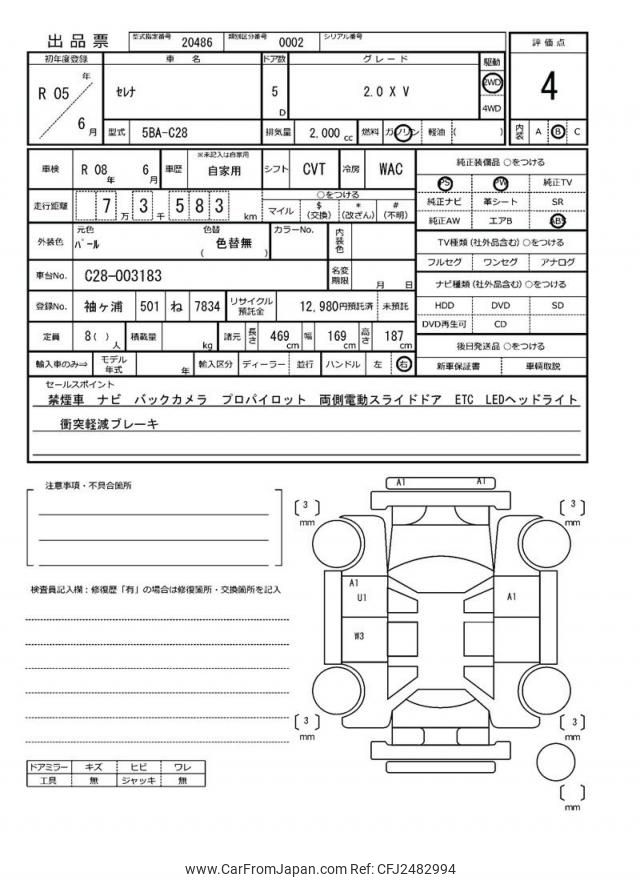 出品票 型式指定番号 20486 類別区分番号 0002 シリアル番号
初年度登録 車名 ドア数 グレード 駆動 評価点
R 05 年 6 月 セレナ 5 D 2.0 X V 2WD 4WD 4
型式 5BA-C28 排気量 2,000 cc 燃料 ガソリン 軽油 ( ) 内装 A B C
車検 R 08 年 6 月 車歴 ※未記入は自家用 自家用 シフト CVT 冷房 WAC
走行距離 7 万 3 千 5 8 3 km
○をつける
マイル $ (交換) * (改ざん) # (不明)
外装色 元色 パール 色替 色替無 ( ) カラーNo. 内装色
車台No. C28-003183 名変期限 月 日
登録No. 袖ヶ浦 501 ね 7834 リサイクル預託金 12,980円預託済 未預託
定員 8( ) 人 積載量 kg 諸元 長さ 469 cm 幅 169 cm 高さ 187 cm
輸入車のみ⇒ モデル年式 年 輸入区分 ディーラー 並行 ハンドル 左 右
純正装備品 ○をつける
PS PW 純正TV
純正ナビ 革シート SR
純正AW エアB ABS
TV種類 (社外品含む) ○をつける
フルセグ ワンセグ アナログ
ナビ種類 (社外品含む) ○をつける
HDD DVD SD
DVD再生可 CD
後日発送品 ○をつける
新車保証書 車輌取説
セールスポイント
禁煙車 ナビ バックカメラ プロパイロット 両側電動スライドドア ETC LEDヘッドライト
衝突軽減ブレーキ
注意事項・不具合箇所
検査員記入欄：修復歴「有」の場合は修復箇所・交換箇所を記入
A1 A1
3 mm
3 mm
A1
U1
A1
W3
3 mm
3 mm
mm
ドアミラー キズ ヒビ ワレ
工具 無 ジャッキ 無
www.CarFromJapan.com Ref: CFJ2482994